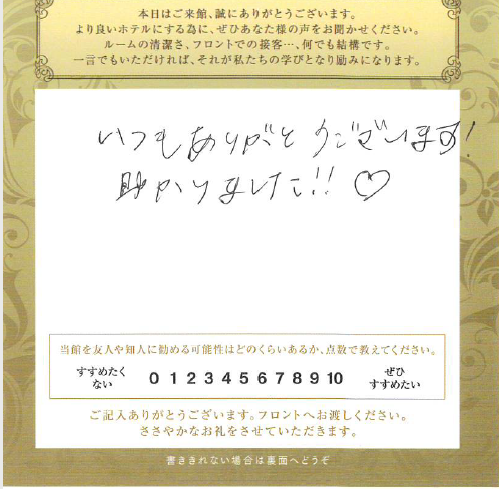 本日はご来館、誠にありがとうございます。
より良いホテルにする為に、ぜひあなた様の声をお聞かせください。
ルームの清潔さ、フロントでの接客…、何でも結構です。
一言でもいただければ、それが私たちの学びとなり励みになります。
いつもありがとうございます!
助かりました!!♡
当館を友人や知人に勧める可能性はどのくらいあるか、点数で教えてください。
すすめたく
ない
0 1 2 3 4 5 6 7 8 9 10
ぜひ
すすめたい
ご記入ありがとうございます。フロントへお渡しください。
ささやかなお礼をさせていただきます。
書ききれない場合は裏面へどうぞ